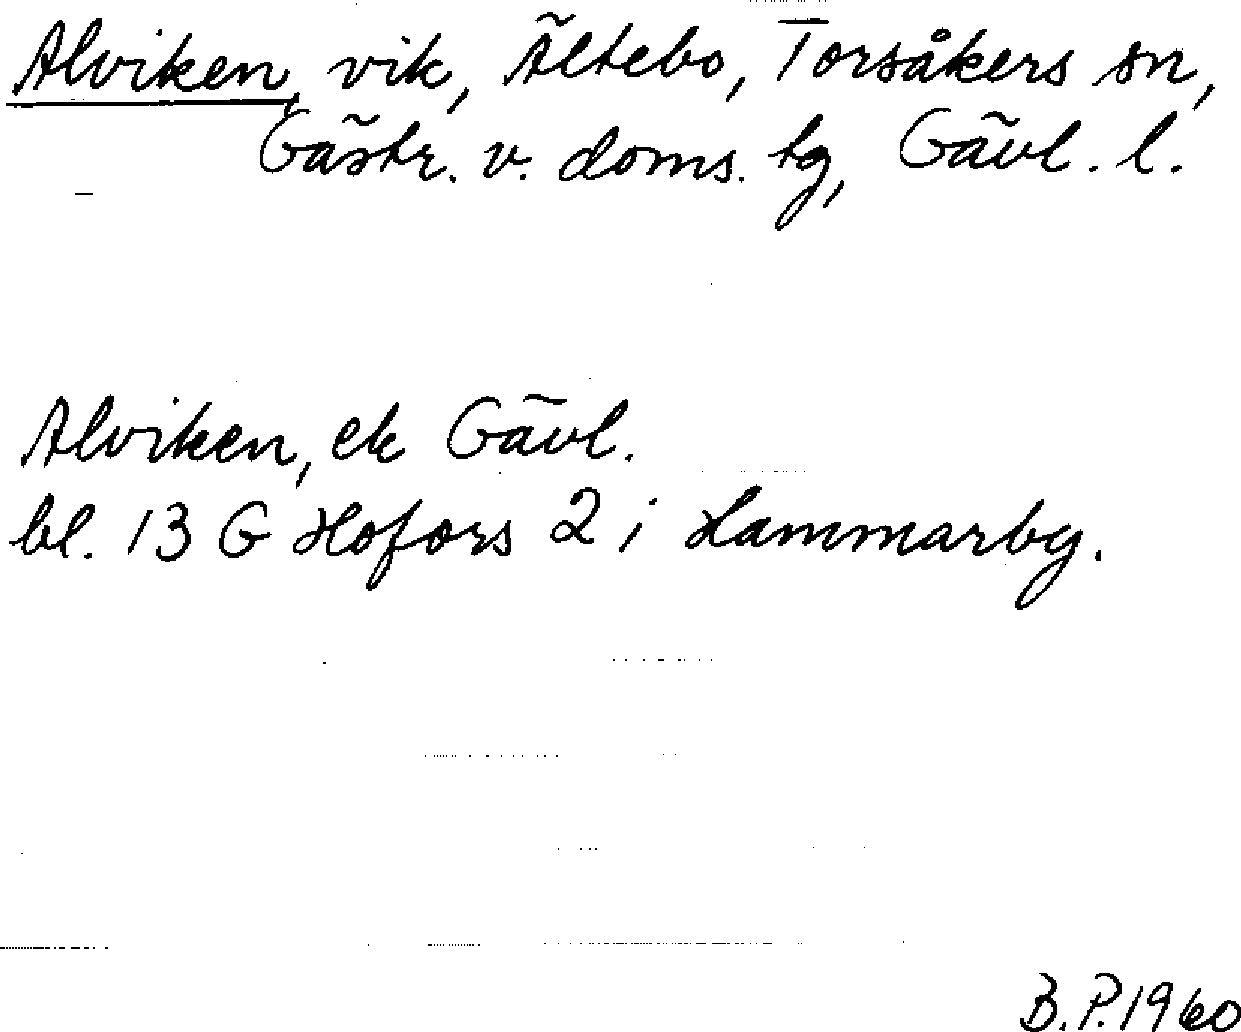 Alviken, vik, Ältebo, Torsåkers sn,
Gästr. v. doms. tg, Gävl. l.
Alviken, ek Gävl.
bl. 13 G Hofors 2 i Hammarby.
B.P. 1960